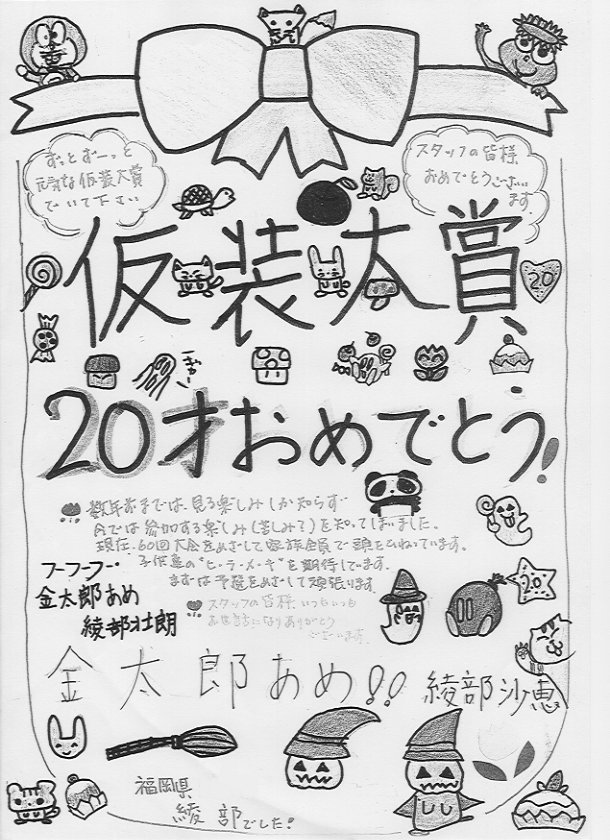 ずっとずーっと
元気な仮装大賞
でいて下さい
スタッフの皆様
おめでとうござい
ます。
仮装大賞
20
ギャー
20才おめでとう!
数年前までは、見る楽しみしか知らず
今では参加する楽しみ(苦しみ?)を知ってしまいました。
現在、60回大会をめざして家族会員で頭をひねっています。
子供達の"ヒ・ラ・メ・キ"を期待しています。
まずは予選をめざして頑張ります。
フーフーフー・
金太郎あめ
綾部壮朗
スタッフの皆様、いつもいつも
お世話になりありがとう
ございます。
20
金太郎あめ!! 綾部沙恵
福岡県
綾部でした!